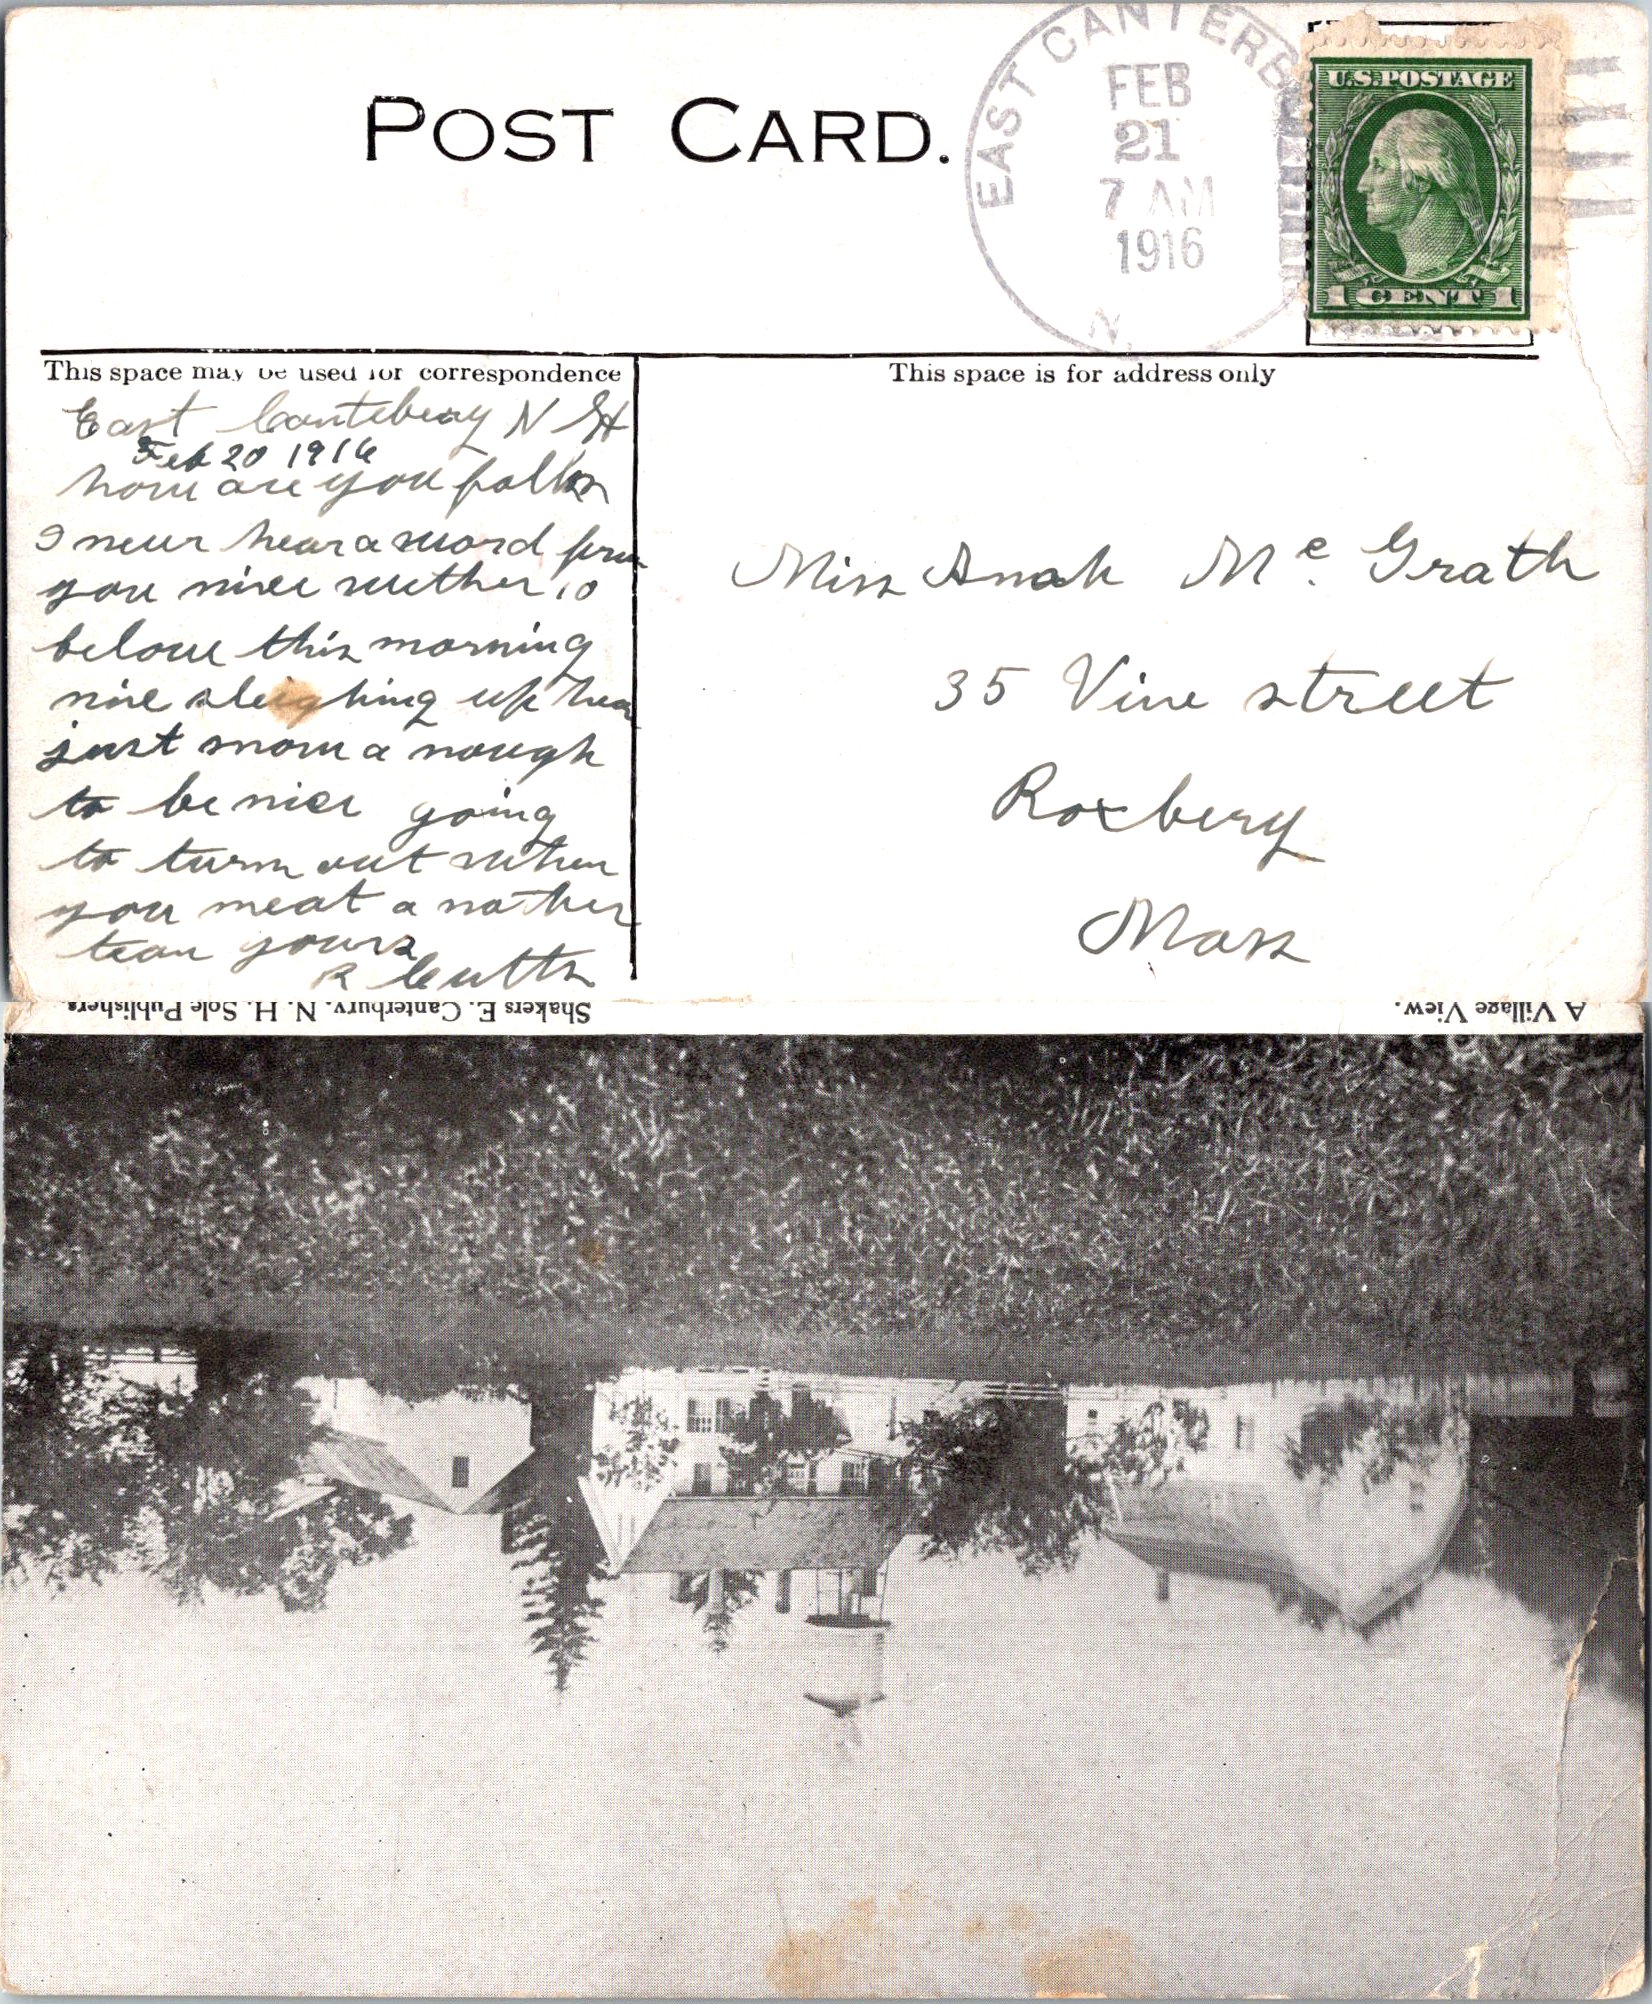 POST CARD.
EAST CANTERB
FEB
21
7 AM
1916
N.
U.S. POSTAGE
1 CENT 1
This space may be used for correspondence
This space is for address only
East Cantebury N H
Feb 20 1916
how are you folks
I never hear a word from
you nice wether 10
below this morning
nice sleighing up hear
just snow a nough
to be nice going
to turn out when
you meat a nother
team yours
R Cutts
Miss Anah Mc Grath
35 Vine street
Roxbery
Mass
A Village View.
Shakers E. Canterbury, N. H. Sole Publishers.